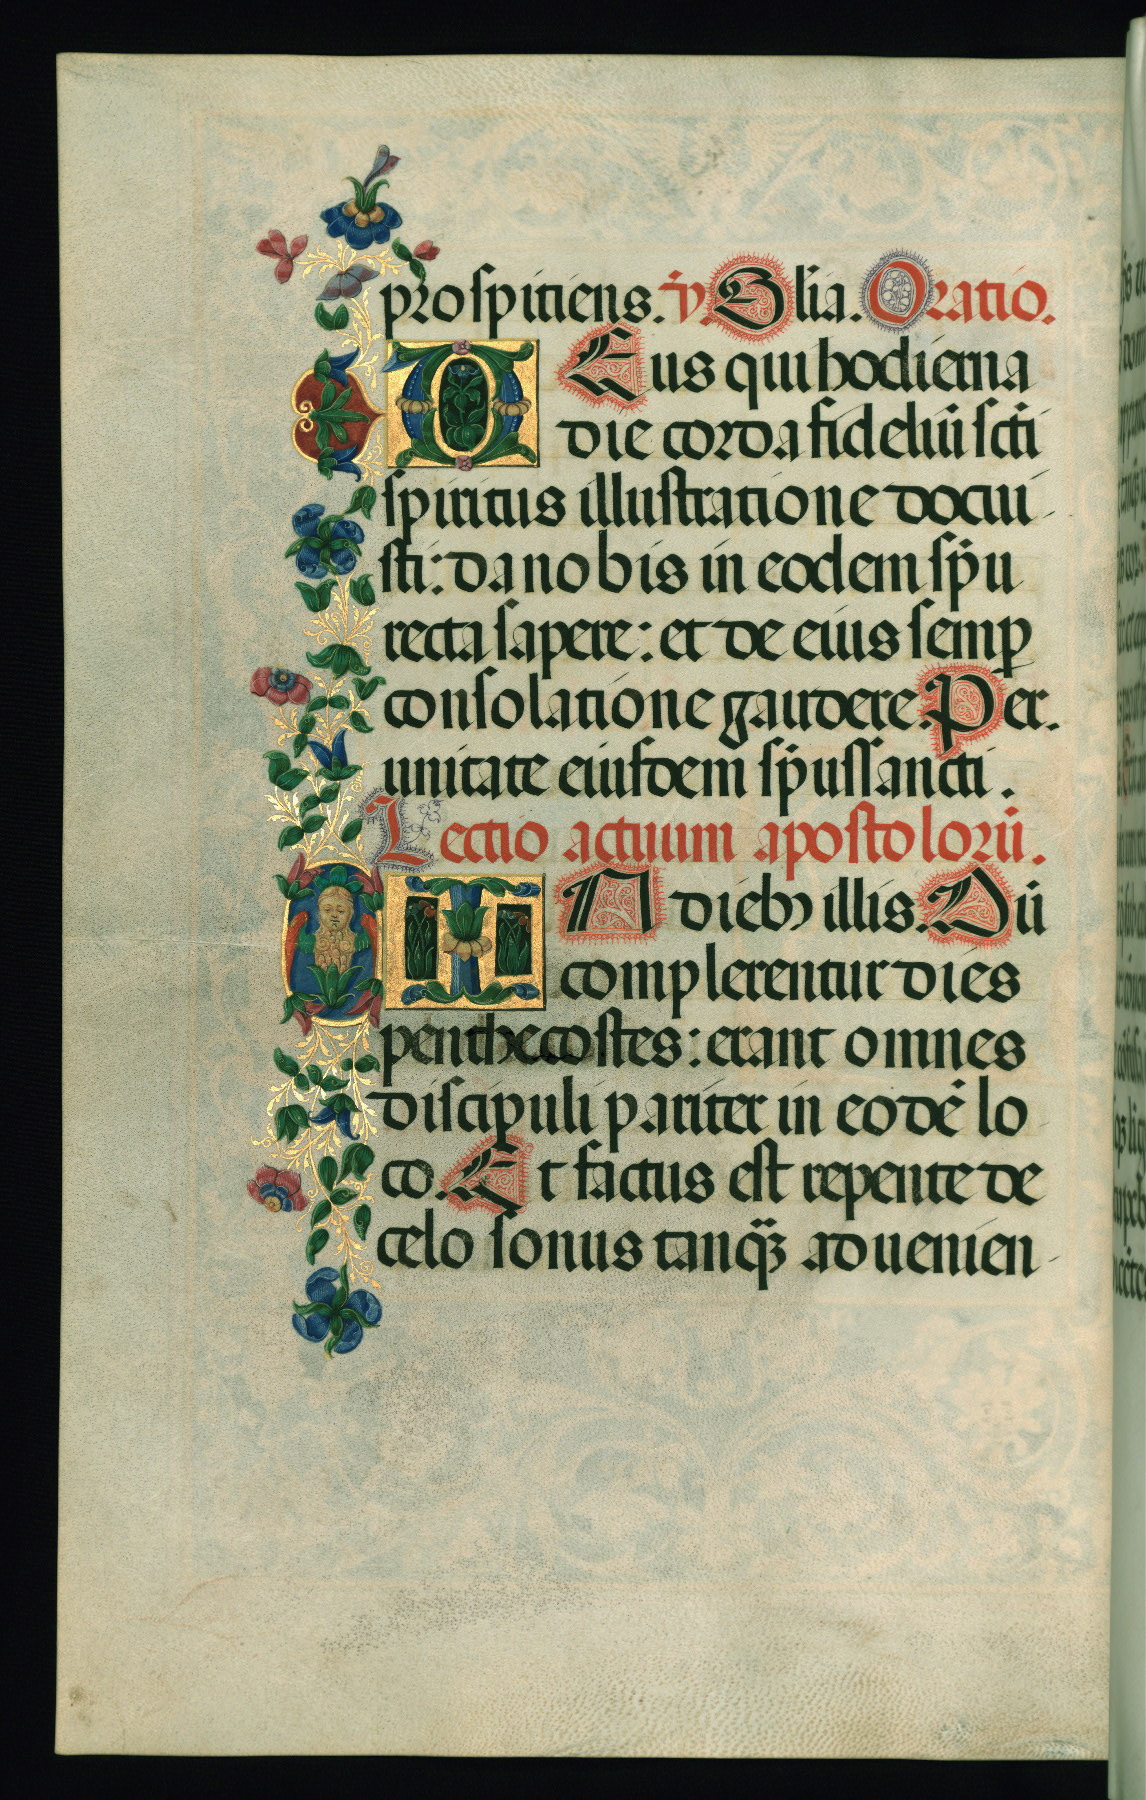 prospiciens. ℣. Gl̄ia. Oratio.
DEus qui hodierna
die corda fideliū sc̄ti
spiritus illustratione docui
sti: da nobis in eodem sp̄u
recta sapere: et de eius semꝑ
consolatione gaudere. Per.
unitate eiusdem sp̄ussancti.
Lectio actuum apostolorū.
IN diebꝰ illis. Dū
complerentur dies
penthecostes: erant omnes
discipuli pariter in eodē lo
co. Et factus est repente de
celo sonus tanqᷓꝫ aduenien